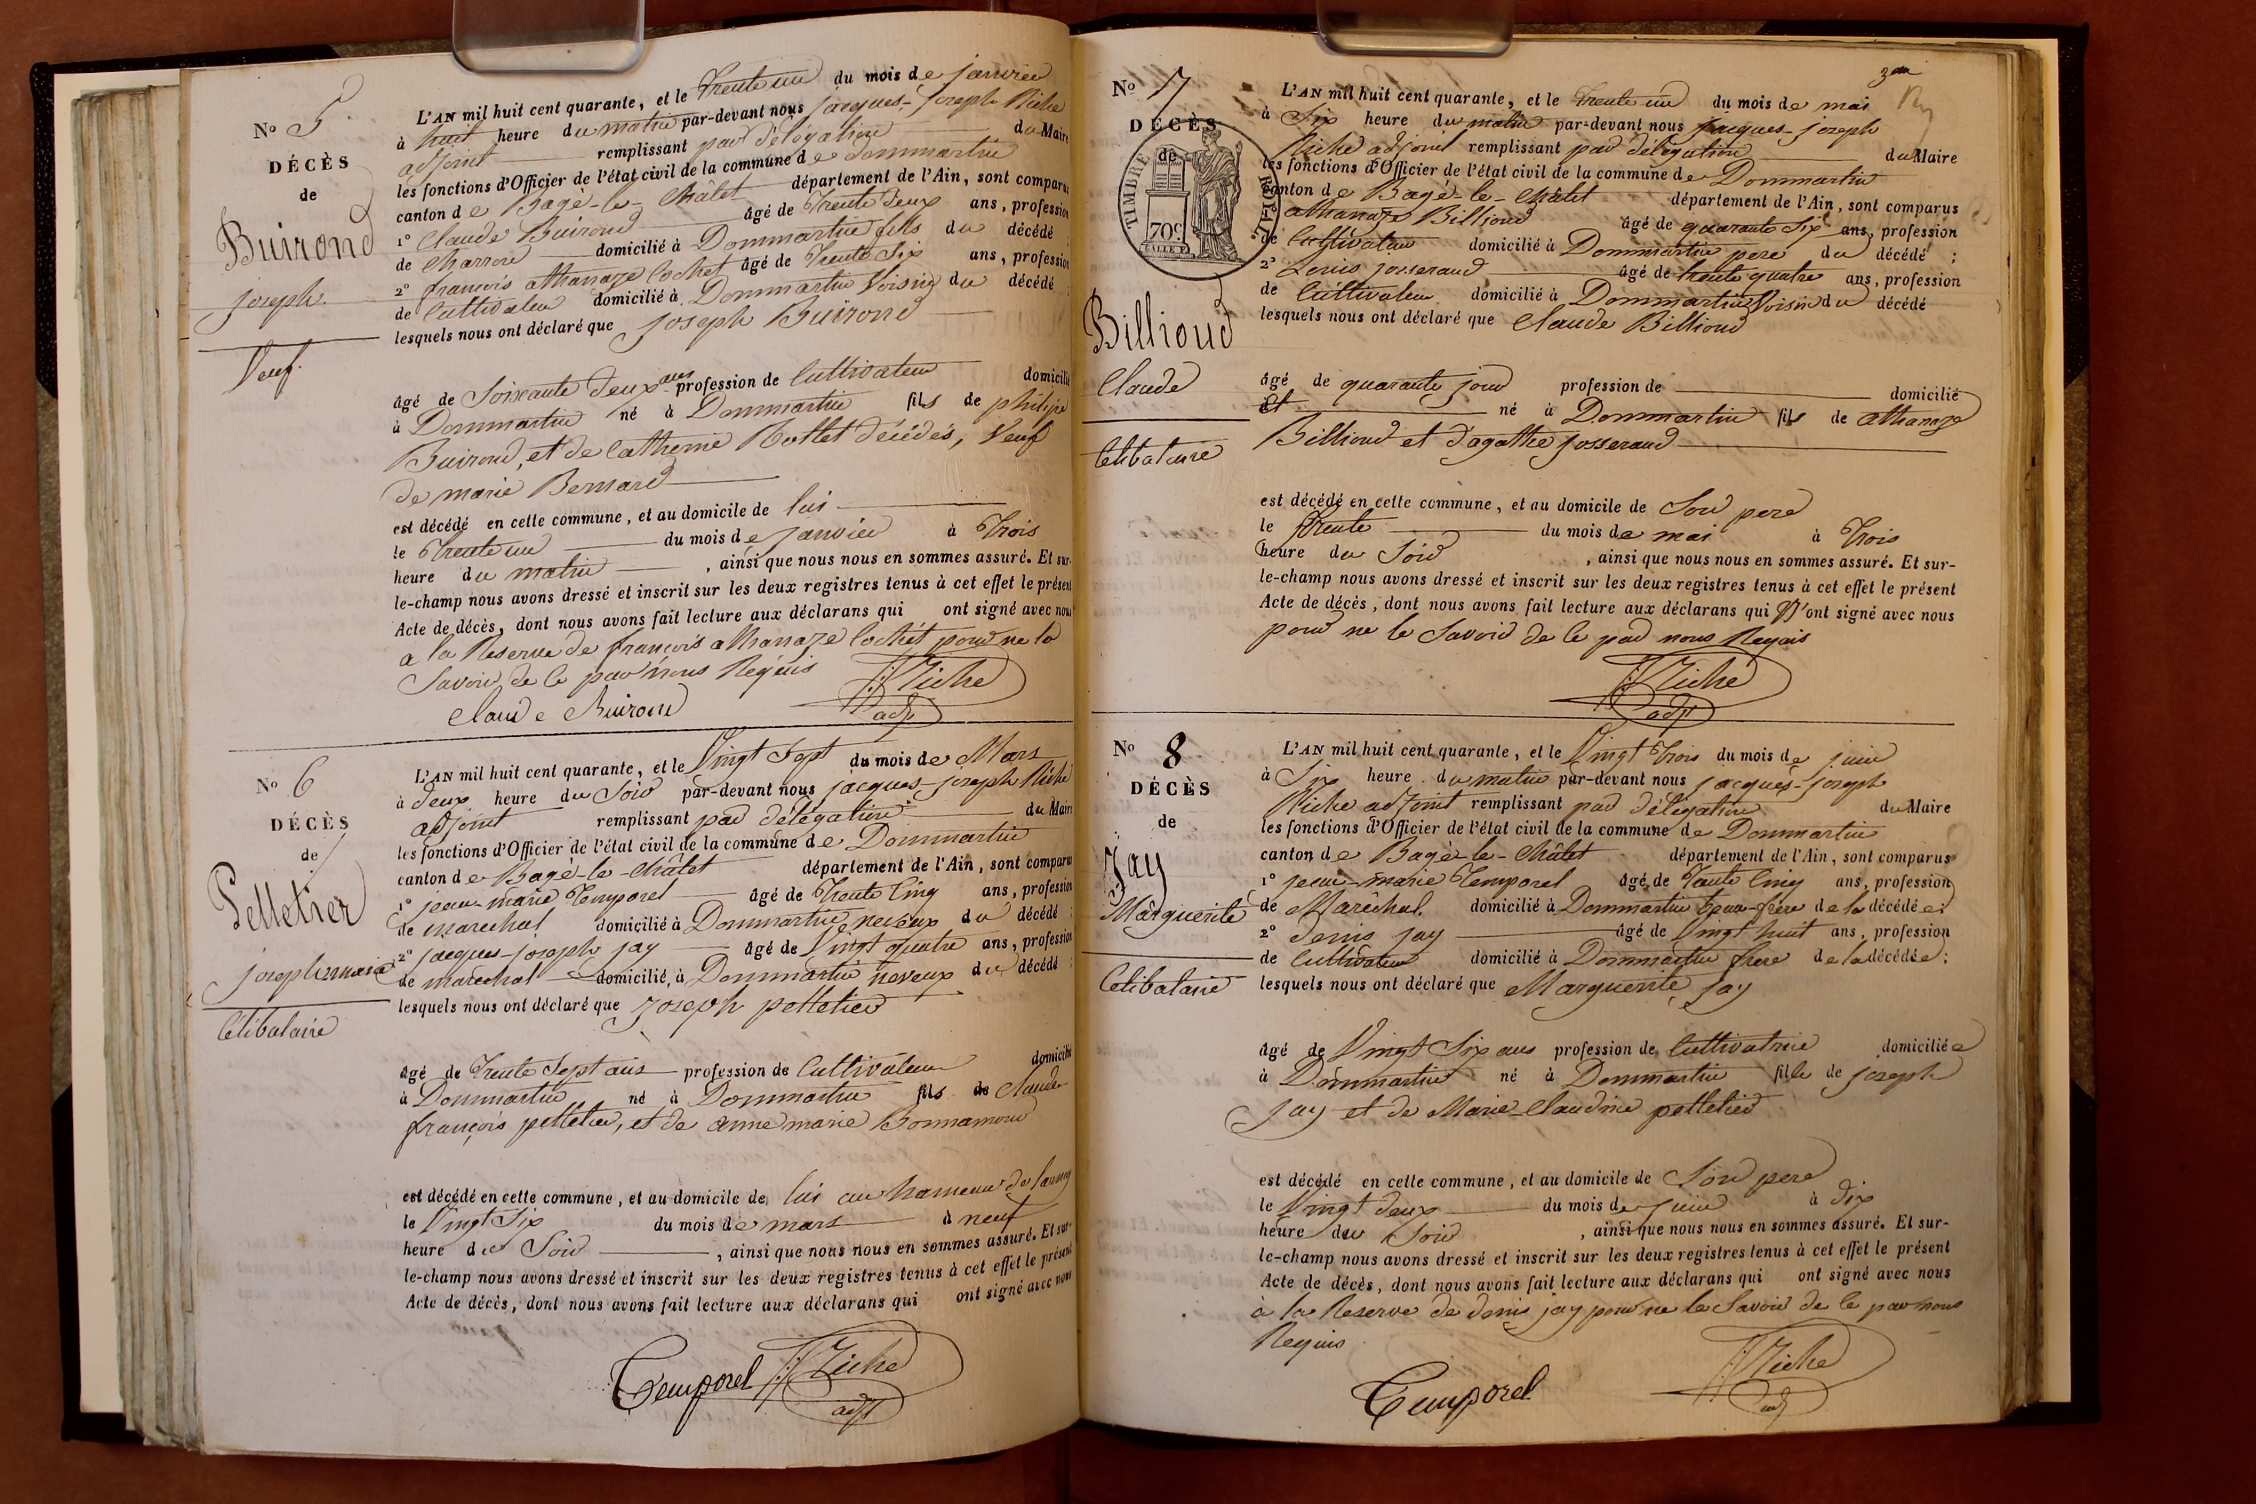 N° 5
DÉCÈS
de
Buirond
joseph.
Veuf.
L'AN mil huit cent quarante, et le Trente un du mois de janvier
à huit heure du matin par-devant nous jacques-joseph Riche
adjoint remplissant par délégation du Maire
les fonctions d'Officier de l'état civil de la commune de Dommartin
canton de Bagé-le-Châtel département de l'Ain, sont comparus
1° Claude Buirond âgé de Trente deux ans, profession
de Charron domicilié à Dommartin fils du décédé ;
2° françois athanaze Cochet âgé de Trente Six ans, profession
de Cultivateur domicilié à Dommartin Voisin du décédé ;
lesquels nous ont déclaré que joseph Buirond
âgé de Soixante deux ans profession de Cultivateur domicilié
à Dommartin né à Dommartin fils de philipe
Buirond, et de Catherine Rollet décédés, Veuf
de marie Bernard
est décédé en cette commune, et au domicile de lui
le Trente un du mois de janvier à Trois
heure du matin, ainsi que nous nous en sommes assuré. Et sur-
le-champ nous avons dressé et inscrit sur les deux registres tenus à cet effet le présent
Acte de décès, dont nous avons fait lecture aux déclarans qui ont signé avec nous
a la Reserve de françois athanaze Cochet pour ne le
Savoir de ce par nous Requis
Claude Buirond
Riche
adjt
N° 6
DÉCÈS
de
Pelletier
joseph marie
Célibataire
L'AN mil huit cent quarante, et le Vingt Sept du mois de Mars
à deux heure du Soir par-devant nous jacques-joseph Riche
adjoint remplissant par délégation du Maire
les fonctions d'Officier de l'état civil de la commune de Dommartin
canton de Bagé-le-Châtel département de l'Ain, sont comparus
1° jean-marie Temporel âgé de Trente Cinq ans, profession
de marechal domicilié à Dommartin neveux du décédé ;
2° jacques-joseph jay âgé de Vingt quatre ans, profession
de marechal domicilié à Dommartin neveux du décédé ;
lesquels nous ont déclaré que joseph pelletier
âgé de Trente Sept ans profession de Cultivateur domicilié
à Dommartin né à Dommartin fils de Claude
françois pelletier, et de anne marie Bonnamour
est décédé en cette commune, et au domicile de lui au hameau de
le Vingt Six du mois de mars à neuf
heure du Soir, ainsi que nous nous en sommes assuré. Et sur-
le-champ nous avons dressé et inscrit sur les deux registres tenus à cet effet le présent
Acte de décès, dont nous avons fait lecture aux déclarans qui ont signé avec nous
Temporel Riche
adjt
N° 7
DÉCÈS
de
TIMBRE ROYAL
70c
Billioud
Claude
Célibataire
L'AN mil huit cent quarante, et le Trente un du mois de mai
à Six heure du matin par-devant nous jacques-joseph
Riche adjoint remplissant par délégation du Maire
les fonctions d'Officier de l'état civil de la commune de Dommartin
canton de Bagé-le-Châtel département de l'Ain, sont comparus
athanaze Billioud âgé de quarante Six ans, profession
de Cultivateur domicilié à Dommartin pere du décédé ;
2° Louis josserand âgé de trente quatre ans, profession
de Cultivateur domicilié à Dommartin Voisin du décédé
lesquels nous ont déclaré que Claude Billioud
âgé de quarante jour profession de domicilié
né à Dommartin fils de athanaze
Billioud et d'agathe josserand
est décédé en cette commune, et au domicile de Son pere
le Trente du mois de mai à Trois
heure du Soir, ainsi que nous nous en sommes assuré. Et sur-
le-champ nous avons dressé et inscrit sur les deux registres tenus à cet effet le présent
Acte de décès, dont nous avons fait lecture aux déclarans qui N'ont signé avec nous
pour ne le Savoir de ce par nous Requis
Riche
adjt
N° 8
DÉCÈS
de
Jay
Marguerite
Célibataire
L'AN mil huit cent quarante, et le Vingt Trois du mois de juin
à Six heure du matin par-devant nous jacques-joseph
Riche adjoint remplissant par délégation du Maire
les fonctions d'Officier de l'état civil de la commune de Dommartin
canton de Bagé-le-Châtel département de l'Ain, sont comparus
1° jean-marie Temporel âgé de Trente Cinq ans, profession
de Maréchal domicilié à Dommartin beau-frere de la décédée ;
2° denis jay âgé de Vingt huit ans, profession
de Cultivateur domicilié à Dommartin frere de la décédée ;
lesquels nous ont déclaré que Marguerite jay
âgé de Vingt Six ans profession de Cultivatrice domiciliée
à Dommartin né à Dommartin fille de joseph
jay et de Marie-Claudine pelletier
est décédé en cette commune, et au domicile de Son pere
le Vingt deux du mois de juin à dix
heure du Soir, ainsi que nous nous en sommes assuré. Et sur-
le-champ nous avons dressé et inscrit sur les deux registres tenus à cet effet le présent
Acte de décès, dont nous avons fait lecture aux déclarans qui ont signé avec nous
à la Reserve de denis jay pour ne le Savoir de ce par nous
Requis
Temporel
Riche
adj